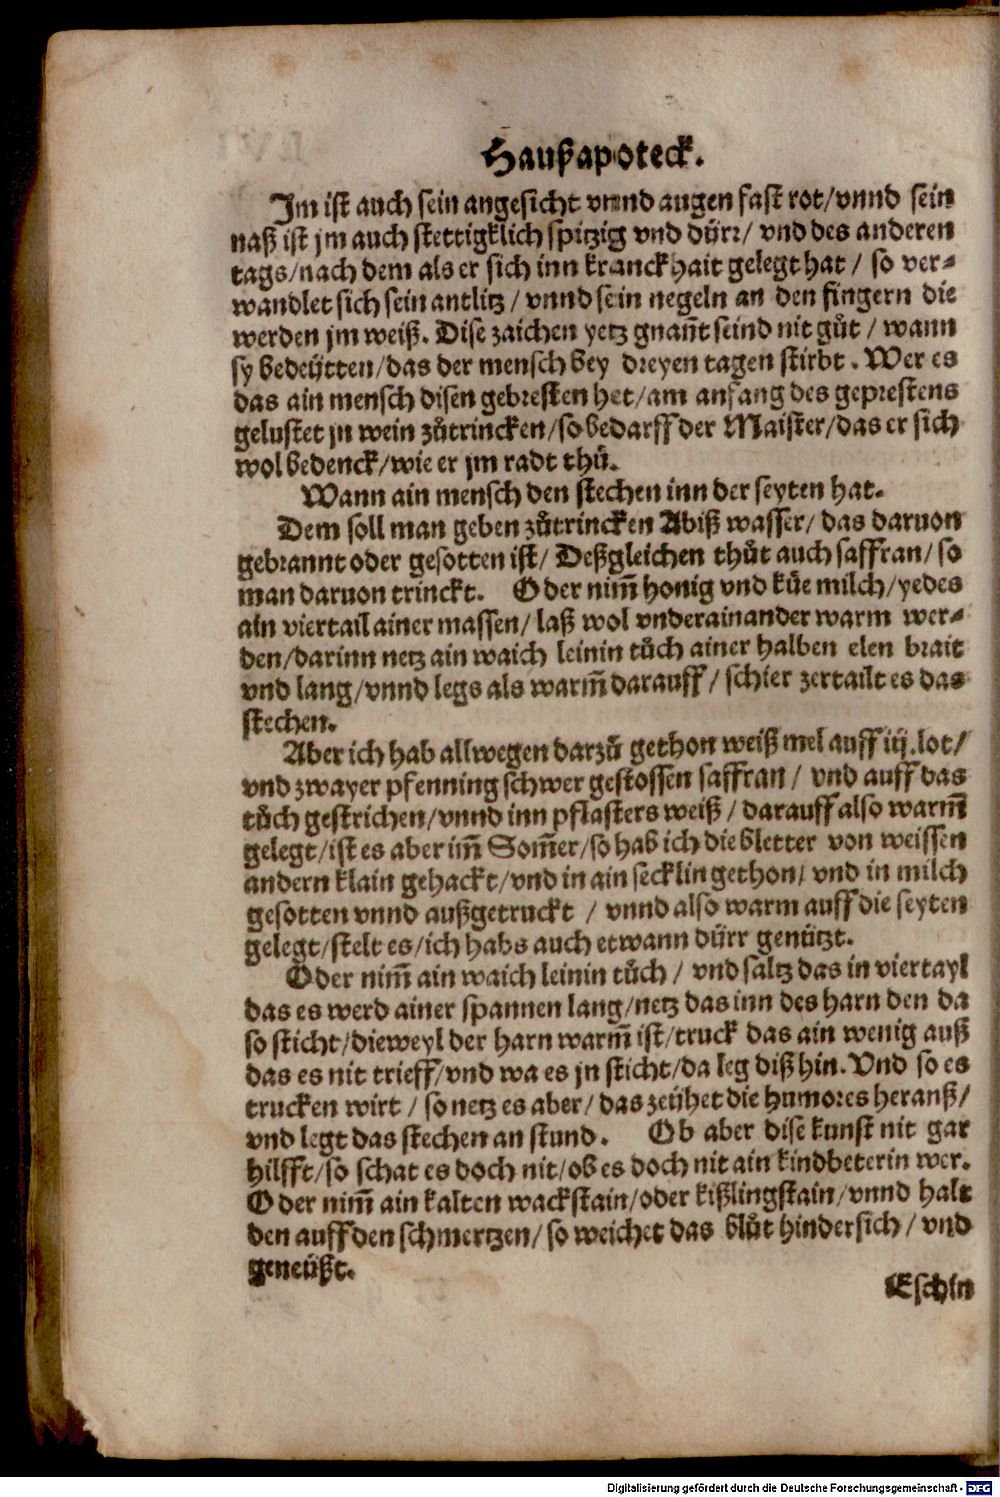 Haußapoteck.
Jm ist auch sein angesicht vnnd augen fast rot/vnnd sein
naß ist jm auch stettigklich spitzig vnd dürr/ vnd des anderen
tags/nach dem als er sich inn kranckhait gelegt hat / so ver-
wandlet sich sein antlitz / vnnd sein negeln an den fingern die
werden jm weiß. Dise zaichen yetz gnañt seind nit gůt / wann
sy bedeütten/das der mensch bey dreyen tagen stirbt. Wer es
das ain mensch disen gebresten het/am anfang des geprestens
gelustet jn wein zůtrincken/so bedarff der Maister/das er sich
wol bedenck/wie er jm radt thů.
Wann ain mensch den stechen inn der seyten hat.
Dem soll man geben zůtrincken Abiß wasser/ das daruon
gebrannt oder gesotten ist/ Deßgleichen thůt auch saffran/ so
man daruon trinckt. Oder nim̃ honig vnd kůe milch/yedes
ain viertail ainer massen/ laß wol vnderainander warm wer-
den/darinn netz ain waich leinin tůch ainer halben elen brait
vnd lang/vnnd legs als warm̃ darauff / schier zertailt es das
stechen.
Aber ich hab allwegen darzů gethon weiß mel auff iij.lot/
vnd zwayer pfenning schwer gestossen saffran / vnd auff das
tůch gestrichen/vnnd inn pflasters weiß / darauff also warm̃
gelegt/ist es aber im̃ Som̃er/so hab ich die bletter von weissen
andern klain gehackt/vnd in ain secklin gethon/ vnd in milch
gesotten vnnd außgetruckt / vnnd also warm auff die seyten
gelegt/stelt es/ich habs auch etwann dürr genützt.
Oder nim̃ ain waich leinin tůch / vnd saltz das in viertayl
das es werd ainer spannen lang/netz das inn des harn den da
so sticht/dieweyl der harn warm̃ ist/truck das ain wenig auß
das es nit trieff/vnd wa es jn sticht/da leg diß hin. Vnd so es
trucken wirt / so netz es aber/ das zeühet die humores herauß/
vnd legt das stechen an stund. Ob aber dise kunst nit gar
hilfft/so schat es doch nit/ob es doch nit ain kindbeterin wer.
Oder nim̃ ain kalten wackstain/oder kißlingstain/vnnd halt
den auff den schmertzen/ so weichet das blůt hindersich / vnd
geneüßt.
Eschin
Digitalisierung gefördert durch die Deutsche Forschungsgemeinschaft - DFG